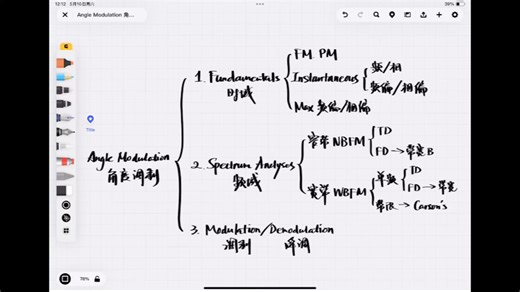 12:12 5月10日周六
39%
Angle Modulation 角...
Title
Angle Modulation
角度调制
1. Fundamentals
时域
FM. PM
Instantaneous
频/相
频偏/相偏
Max 频偏/相偏
2. Spectrum Analyses
频域
窄带 NBFM
TD
FD → 带宽 B
宽带 WBFM
单频
TD
FD → 带宽
带限 → Carson's
3. Modulation/Demodulation
调制 解调
78%